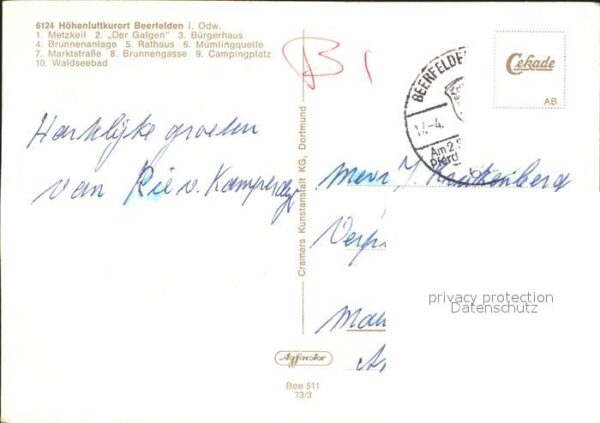 6124 Höhenluftkurort Beerfelden i. Odw.
1. Metzkeil 2. „Der Galgen" 3. Bürgerhaus
4. Brunnenanlage 5. Rathaus 6. Mümlingquelle
7. Marktstraße 8. Brunnengasse 9. Campingplatz
10. Waldseebad
B 1
BEERFELDE
Am 2.
Pferd
Cekade
AB
Hartelijke groeten
van Rie v.
Mevr
Cramers Kunstanstalt KG, Dortmund
privacy protection
Datenschutz
Agfacolor
Bee 511
73/3